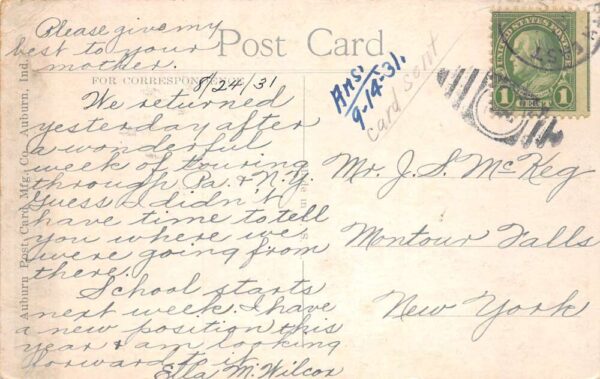 Please give my
best to your
mother.
Post Card
FOR CORRESPONDENCE
8/24/31
We returned
yesterday after
a wonderful
week of touring
through Pa. & N.Y.
Guess I didn't
have time to tell
you where we
were going from
there.
School starts
next week. I have
a new position this
year & am looking
forward to it.
Ella M. Wilcox
Auburn Post Card Mfg. Co., Auburn, Ind.
Ans.
9-14-31.
Card sent
UNITED STATES POSTAGE
1 CENT 1
Mr. J. S. McKeg
Montour Falls
New York